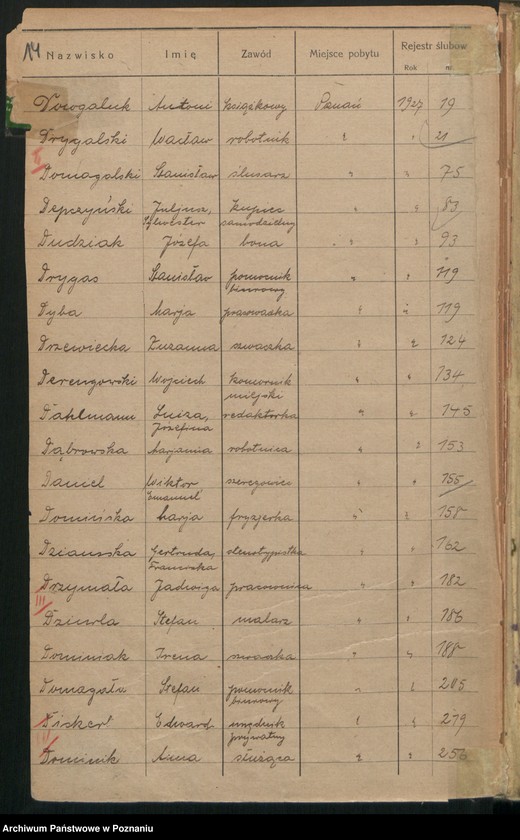 14
Nazwisko Imię Zawód Miejsce pobytu Rejestr ślubów
Rok nr.
Dowgaluk Antoni książkowy Poznań 1927 19
Drygalski Wacław robotnik " " 21
II
Domagalski Stanisław ślusarz " " 75
Depczyński Juljusz, kupiec " " 83
Sylwester samodzielny
Dudziak Józefa bona " " 93
Drygas Stanisław pomocnik " " 119
biurowy
Dyba Marja prasowaczka " " 119
Drzewiecka Zuzanna szwaczka " " 124
Derengowski Wojciech komornik " " 134
miejski
Dahlmann Luiza, redaktorka " " 145
Józefina
Dąbrowska Marjanna robotnica " " 153
Daniel Wiktor " " 155
Emanuel
Domińska Marja fryzjerka " " 158
Gertruda, stenotypistka " " 162
Franciszka
Drzymała Jadwiga pracownica " " 182
III
Dziurla Stefan malarz " " 186
Irena szwaczka " " 188
Domagała Stefan pomocnik " " 205
biurowy
Dickert Edward urzędnik " " 219
prywatny
Dominik Anna służąca " " 256
Archiwum Państwowe w Poznaniu